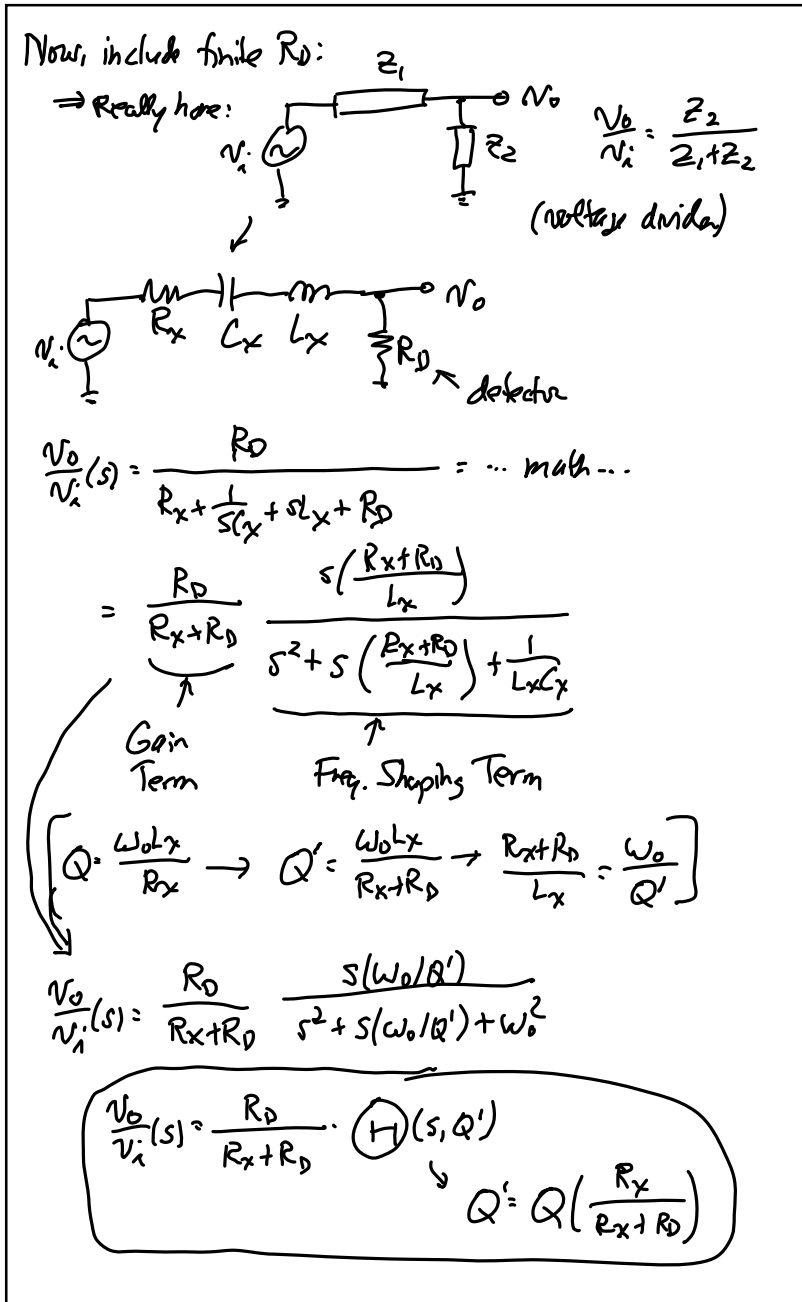 Now, include finite R_D:
⇒ Really have:
Z_1
v_o
v_i
Z_2
v_o/v_i = Z_2/(Z_1+Z_2)
(voltage divider)
R_x C_x L_x
v_o
v_i
R_D
detector
v_o/v_i (s) = R_D/(R_x + 1/(sC_x) + sL_x + R_D) = ... math ...
= R_D/(R_x+R_D) · s((R_x+R_D)/L_x)/(s^2 + s((R_x+R_D)/L_x) + 1/(L_xC_x))
Gain Term
Freq. Shaping Term
[Q = ω_oL_x/R_x → Q' = ω_oL_x/(R_x+R_D) → (R_x+R_D)/L_x = ω_o/Q']
v_o/v_i (s) = R_D/(R_x+R_D) · s(ω_o/Q')/(s^2 + s(ω_o/Q') + ω_o^2)
v_o/v_i (s) = R_D/(R_x+R_D) · Θ(s, Q')
Q' = Q(R_x/(R_x+R_D))